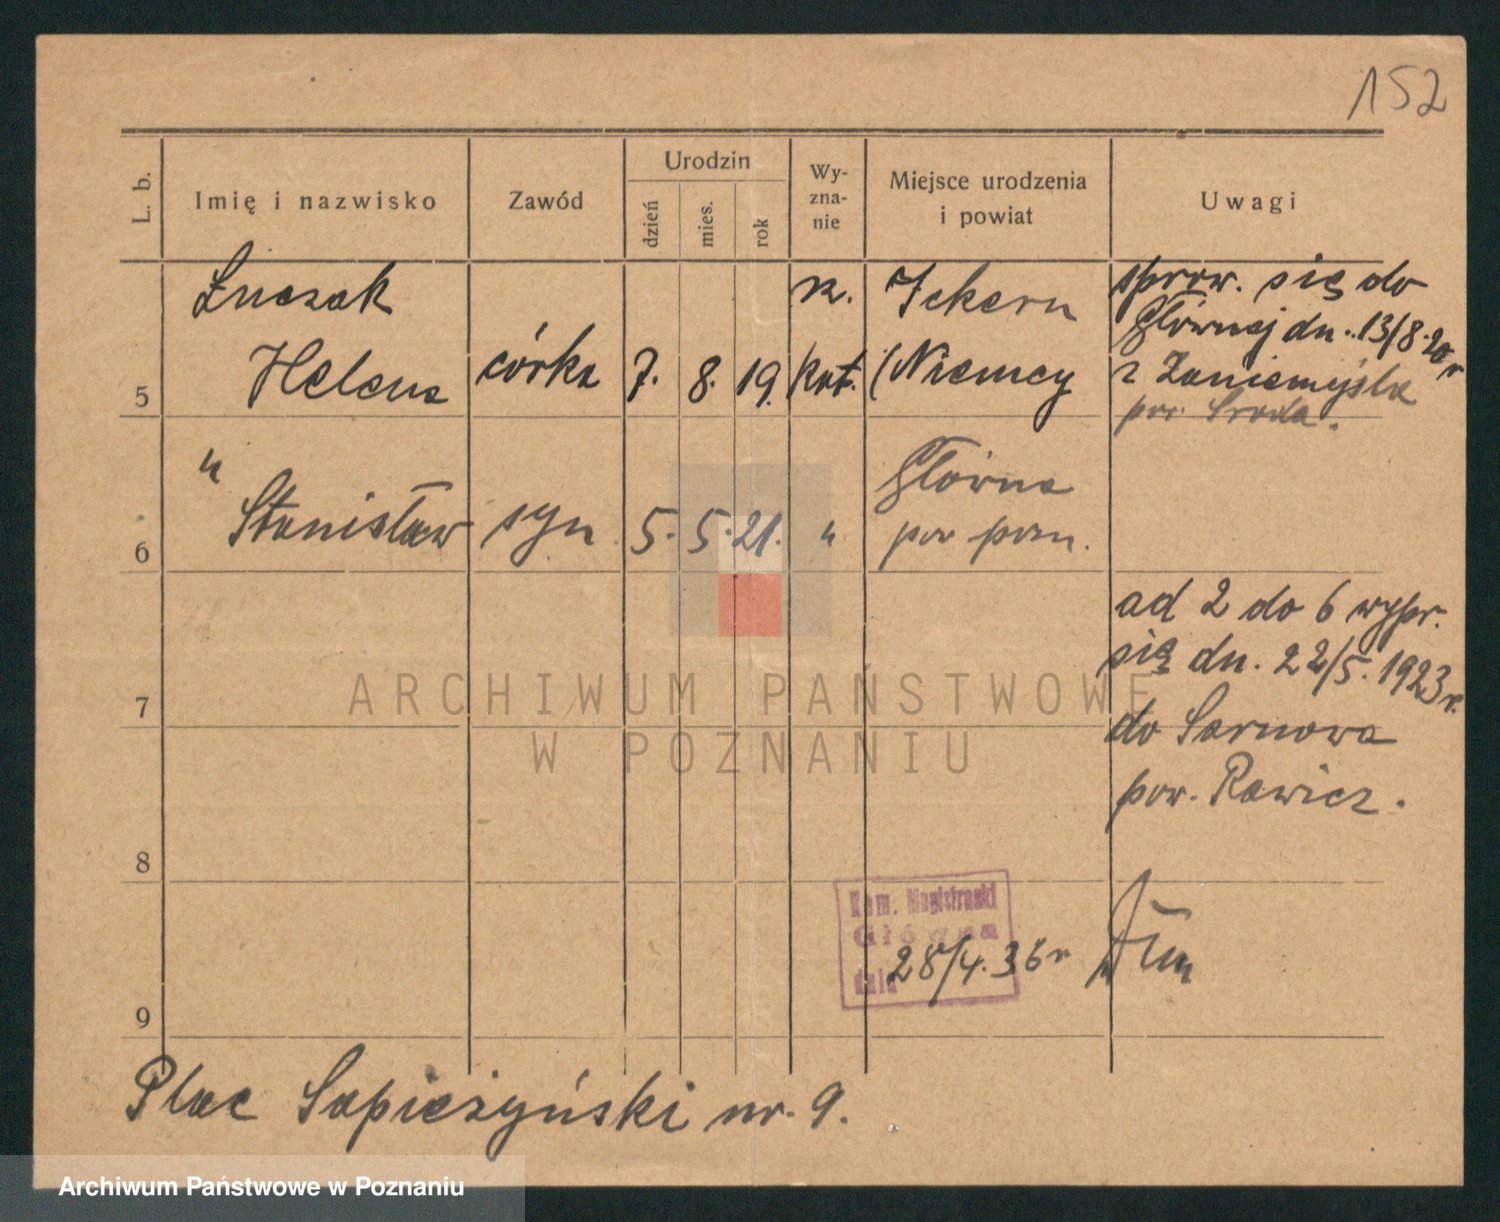 152
L. b.
Imię i nazwisko
Zawód
Urodzin
dzień
mies.
rok
Wy-
zna-
nie
Miejsce urodzenia
i powiat
Uwagi
5
Łuczak
Helena
córka
7. 8. 19.
rz.
kat.
Ickern
(Niemcy
sprow. się do
Głównej dn. 13/8.20 r
z Zaniemyśla
pow. Środa.
6
"
Stanisław
syn
5. 5. 21.
"
Główna
pow pozn.
ad 2 do 6 wypr.
się dn. 22/5. 1923 r.
do Sarnowa
pow. Rawicz.
7
8
9
Kom. Magistracki
Główna
dnia
28/4. 36 r
Plac Sapieżyński nr. 9.
ARCHIWUM PAŃSTWOWE
W POZNANIU
Archiwum Państwowe w Poznaniu